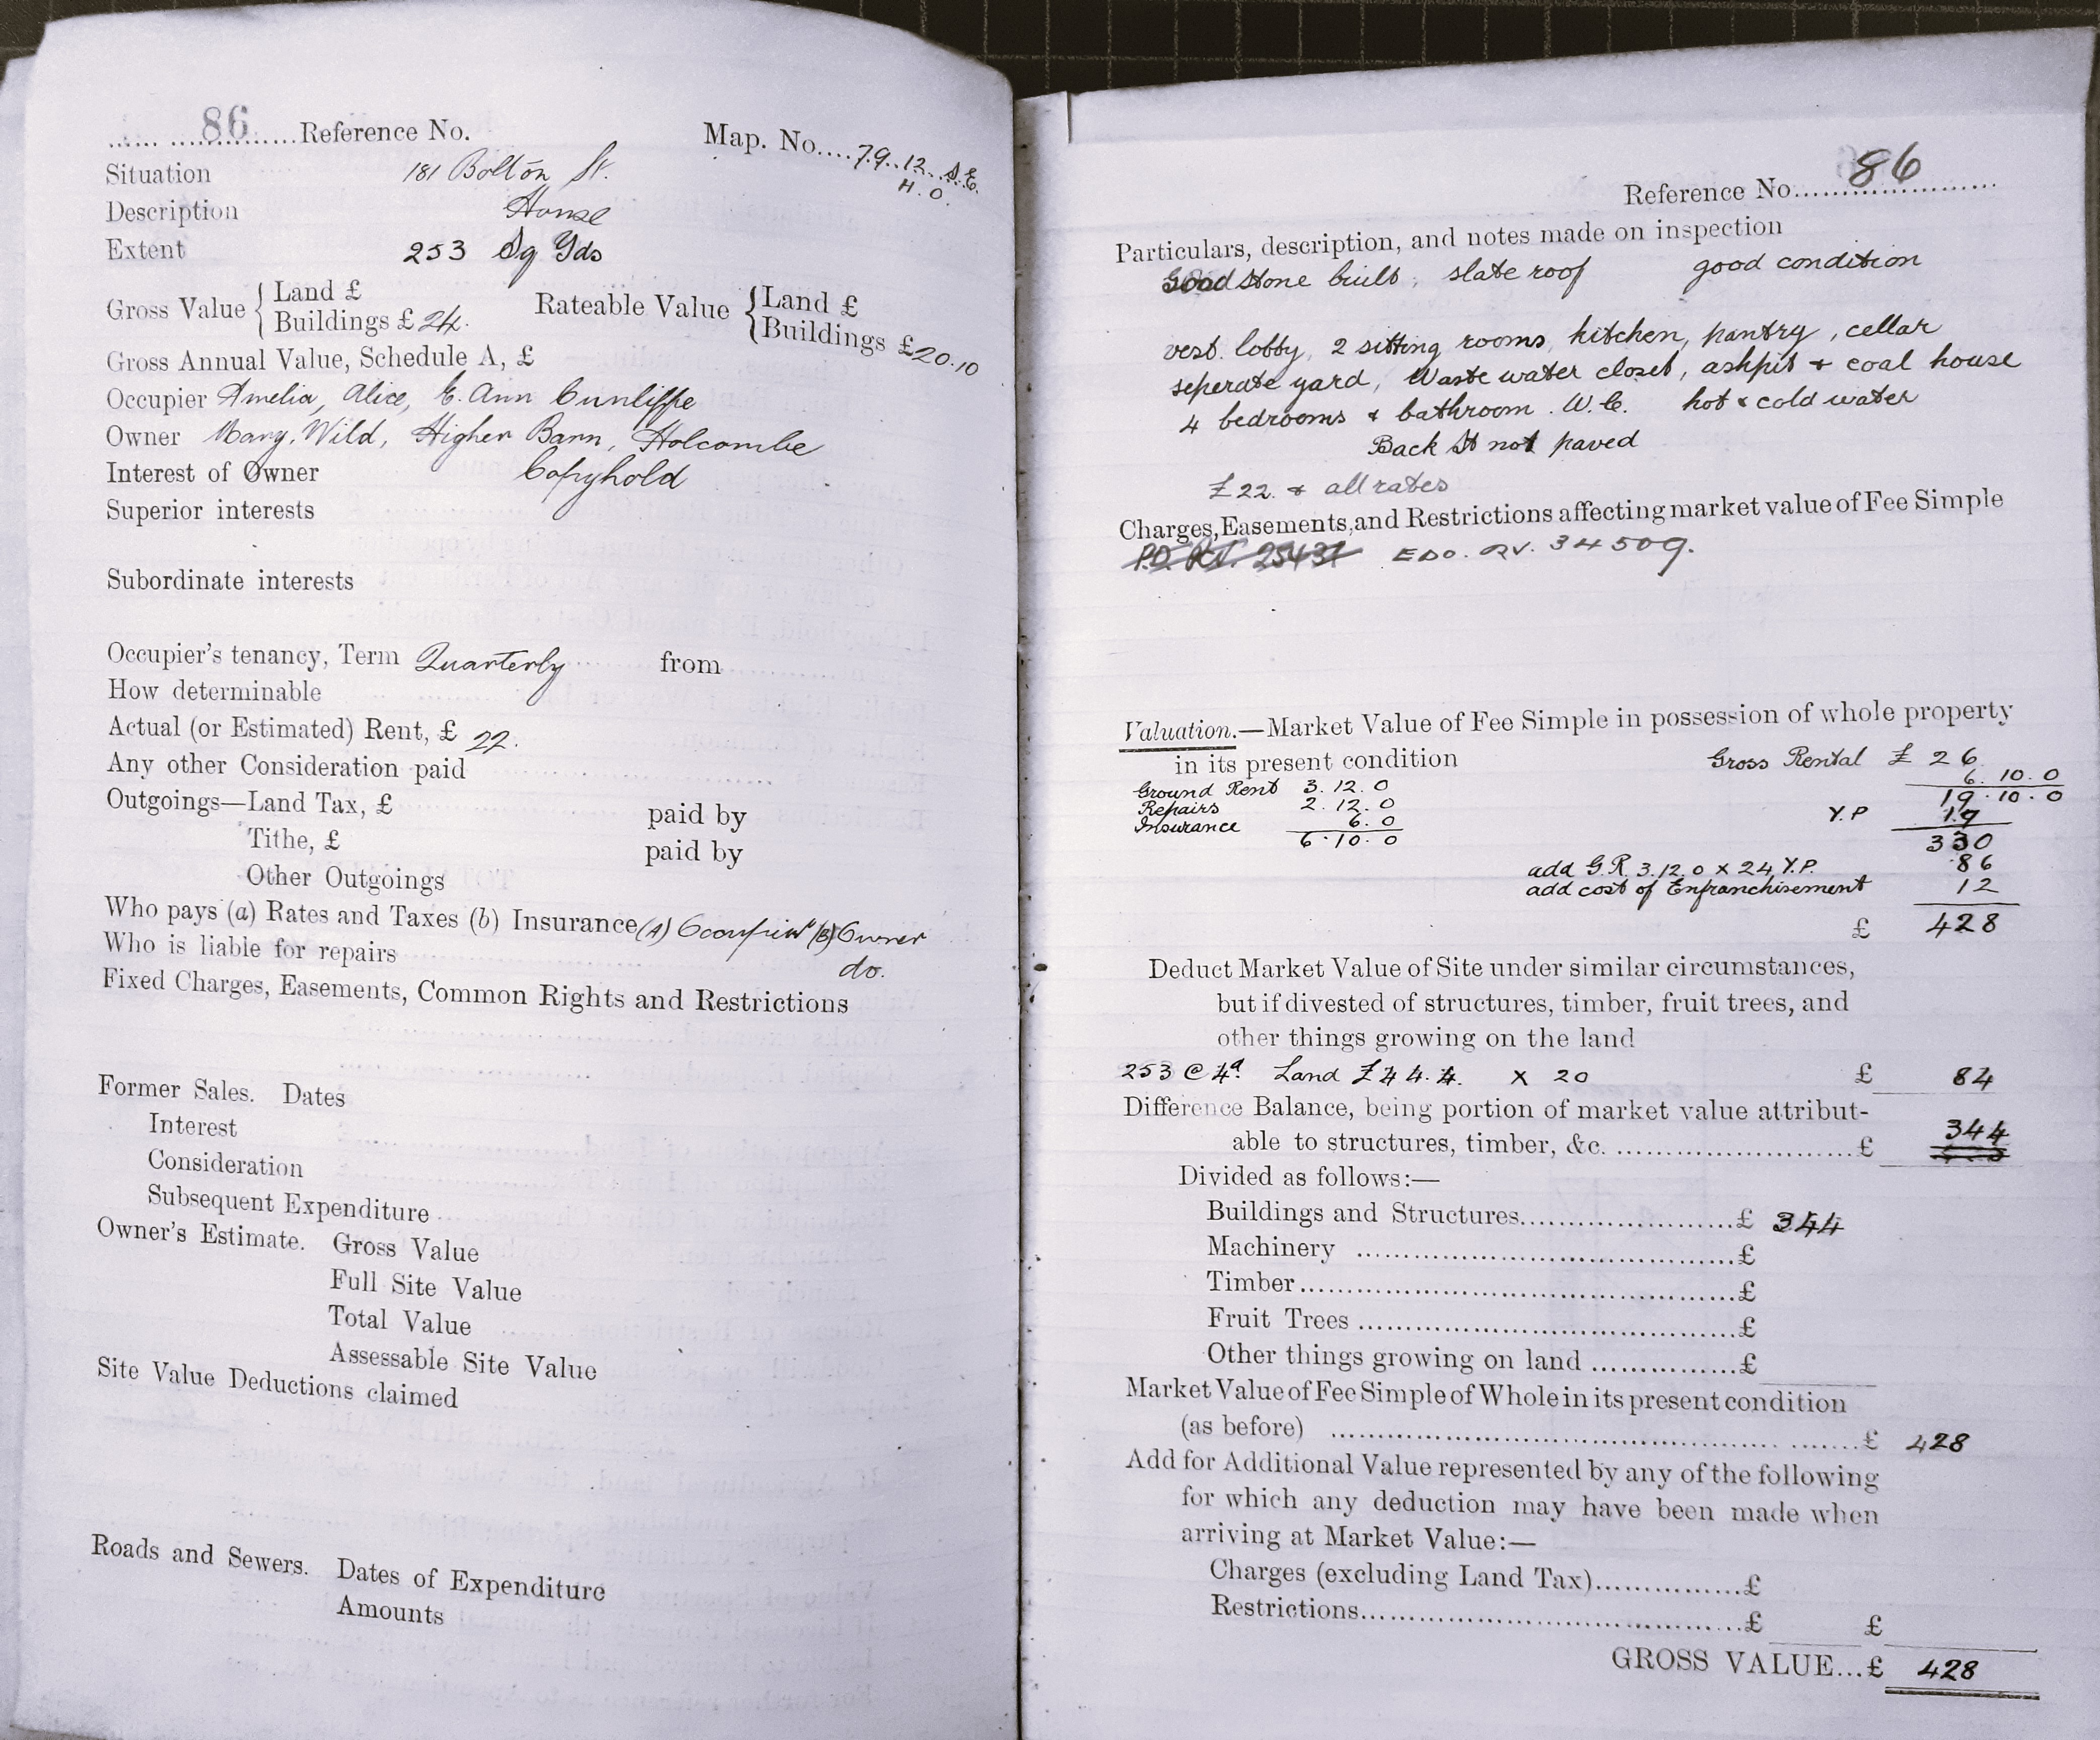 86 Reference No. Map. No. 79.12. S.E.
H.O.
Situation 181 Bolton St.
Description House
Extent 253 Sq Yds
Gross Value { Land £
Buildings £ 24. Rateable Value { Land £
Buildings £20.10
Gross Annual Value, Schedule A, £
Occupier Amelia, Alice, E. Ann Cunliffe
Owner Mary, Wild, Higher Barn, Holcombe
Interest of Owner Copyhold
Superior interests
Subordinate interests
Occupier's tenancy, Term Quarterly from
How determinable
Actual (or Estimated) Rent, £ 22.
Any other Consideration paid
Outgoings—Land Tax, £ paid by
Tithe, £ paid by
Other Outgoings
Who pays (a) Rates and Taxes (b) Insurance (A) Occupier (B) Owner
Who is liable for repairs do.
Fixed Charges, Easements, Common Rights and Restrictions
Former Sales. Dates
Interest
Consideration
Subsequent Expenditure
Owner's Estimate. Gross Value
Full Site Value
Total Value
Assessable Site Value
Site Value Deductions claimed
Roads and Sewers. Dates of Expenditure
Amounts
Reference No. 86
Particulars, description, and notes made on inspection
stone built, slate roof good condition
vest. lobby, 2 sitting rooms, kitchen, pantry, cellar
seperate yard, Waste water closet, ashpit & coal house
4 bedrooms & bathroom. W.C. hot & cold water
Back St not paved
£22. & all rates
Charges, Easements, and Restrictions affecting market value of Fee Simple
25437 EDO. RV. 34509.
Valuation.—Market Value of Fee Simple in possession of whole property
in its present condition Gross Rental £ 26
Ground Rent 3.12.0 6.10.0
Repairs 2.12.0 19.10.0
Insurance 6.0 Y.P 17
6.10.0 330
add G.R 3.12.0 x 24 Y.P. 86
add cost of Enfranchisement 12
£ 428
Deduct Market Value of Site under similar circumstances,
but if divested of structures, timber, fruit trees, and
other things growing on the land
253 @ 4d. Land £4 4.4. x 20 £ 84
Difference Balance, being portion of market value attribut-
able to structures, timber, &c. £ 344
Divided as follows:—
Buildings and Structures £ 344
Machinery £
Timber £
Fruit Trees £
Other things growing on land £
Market Value of Fee Simple of Whole in its present condition
(as before) £ 428
Add for Additional Value represented by any of the following
for which any deduction may have been made when
arriving at Market Value:—
Charges (excluding Land Tax) £
Restrictions £ £
GROSS VALUE...£ 428